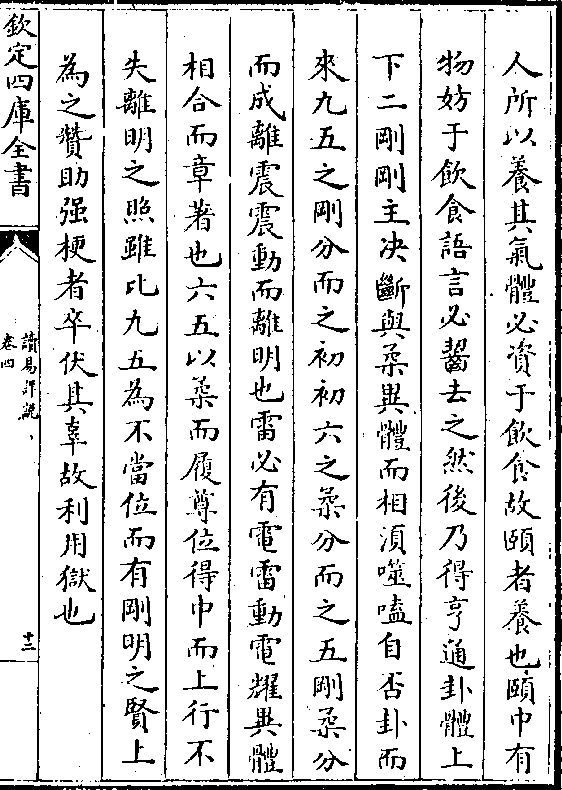 人所以養其氣體必資于飲食故頤者養也頤中有
物妨于飲食語言必齧去之然後乃得亨通卦體上
下二剛剛主決斷與柔異體而相湏噬嗑自否卦而
來九五之剛分而之初初六之柔分而之五剛柔分
而成離震震動而離明也雷必有電雷動電耀異體
相合而章著也六五以柔而履尊位得中而上行不
失離明之照雖比九五為不當位而有剛明之賢上
為之贊助强梗者卒伏其辜故利用獄也
欽定四庫全書
讀易詳說
卷四
十二